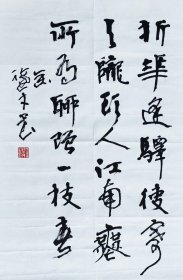 折華逢驛使寄
与隴頭人江南無
所有聊贈一枝春